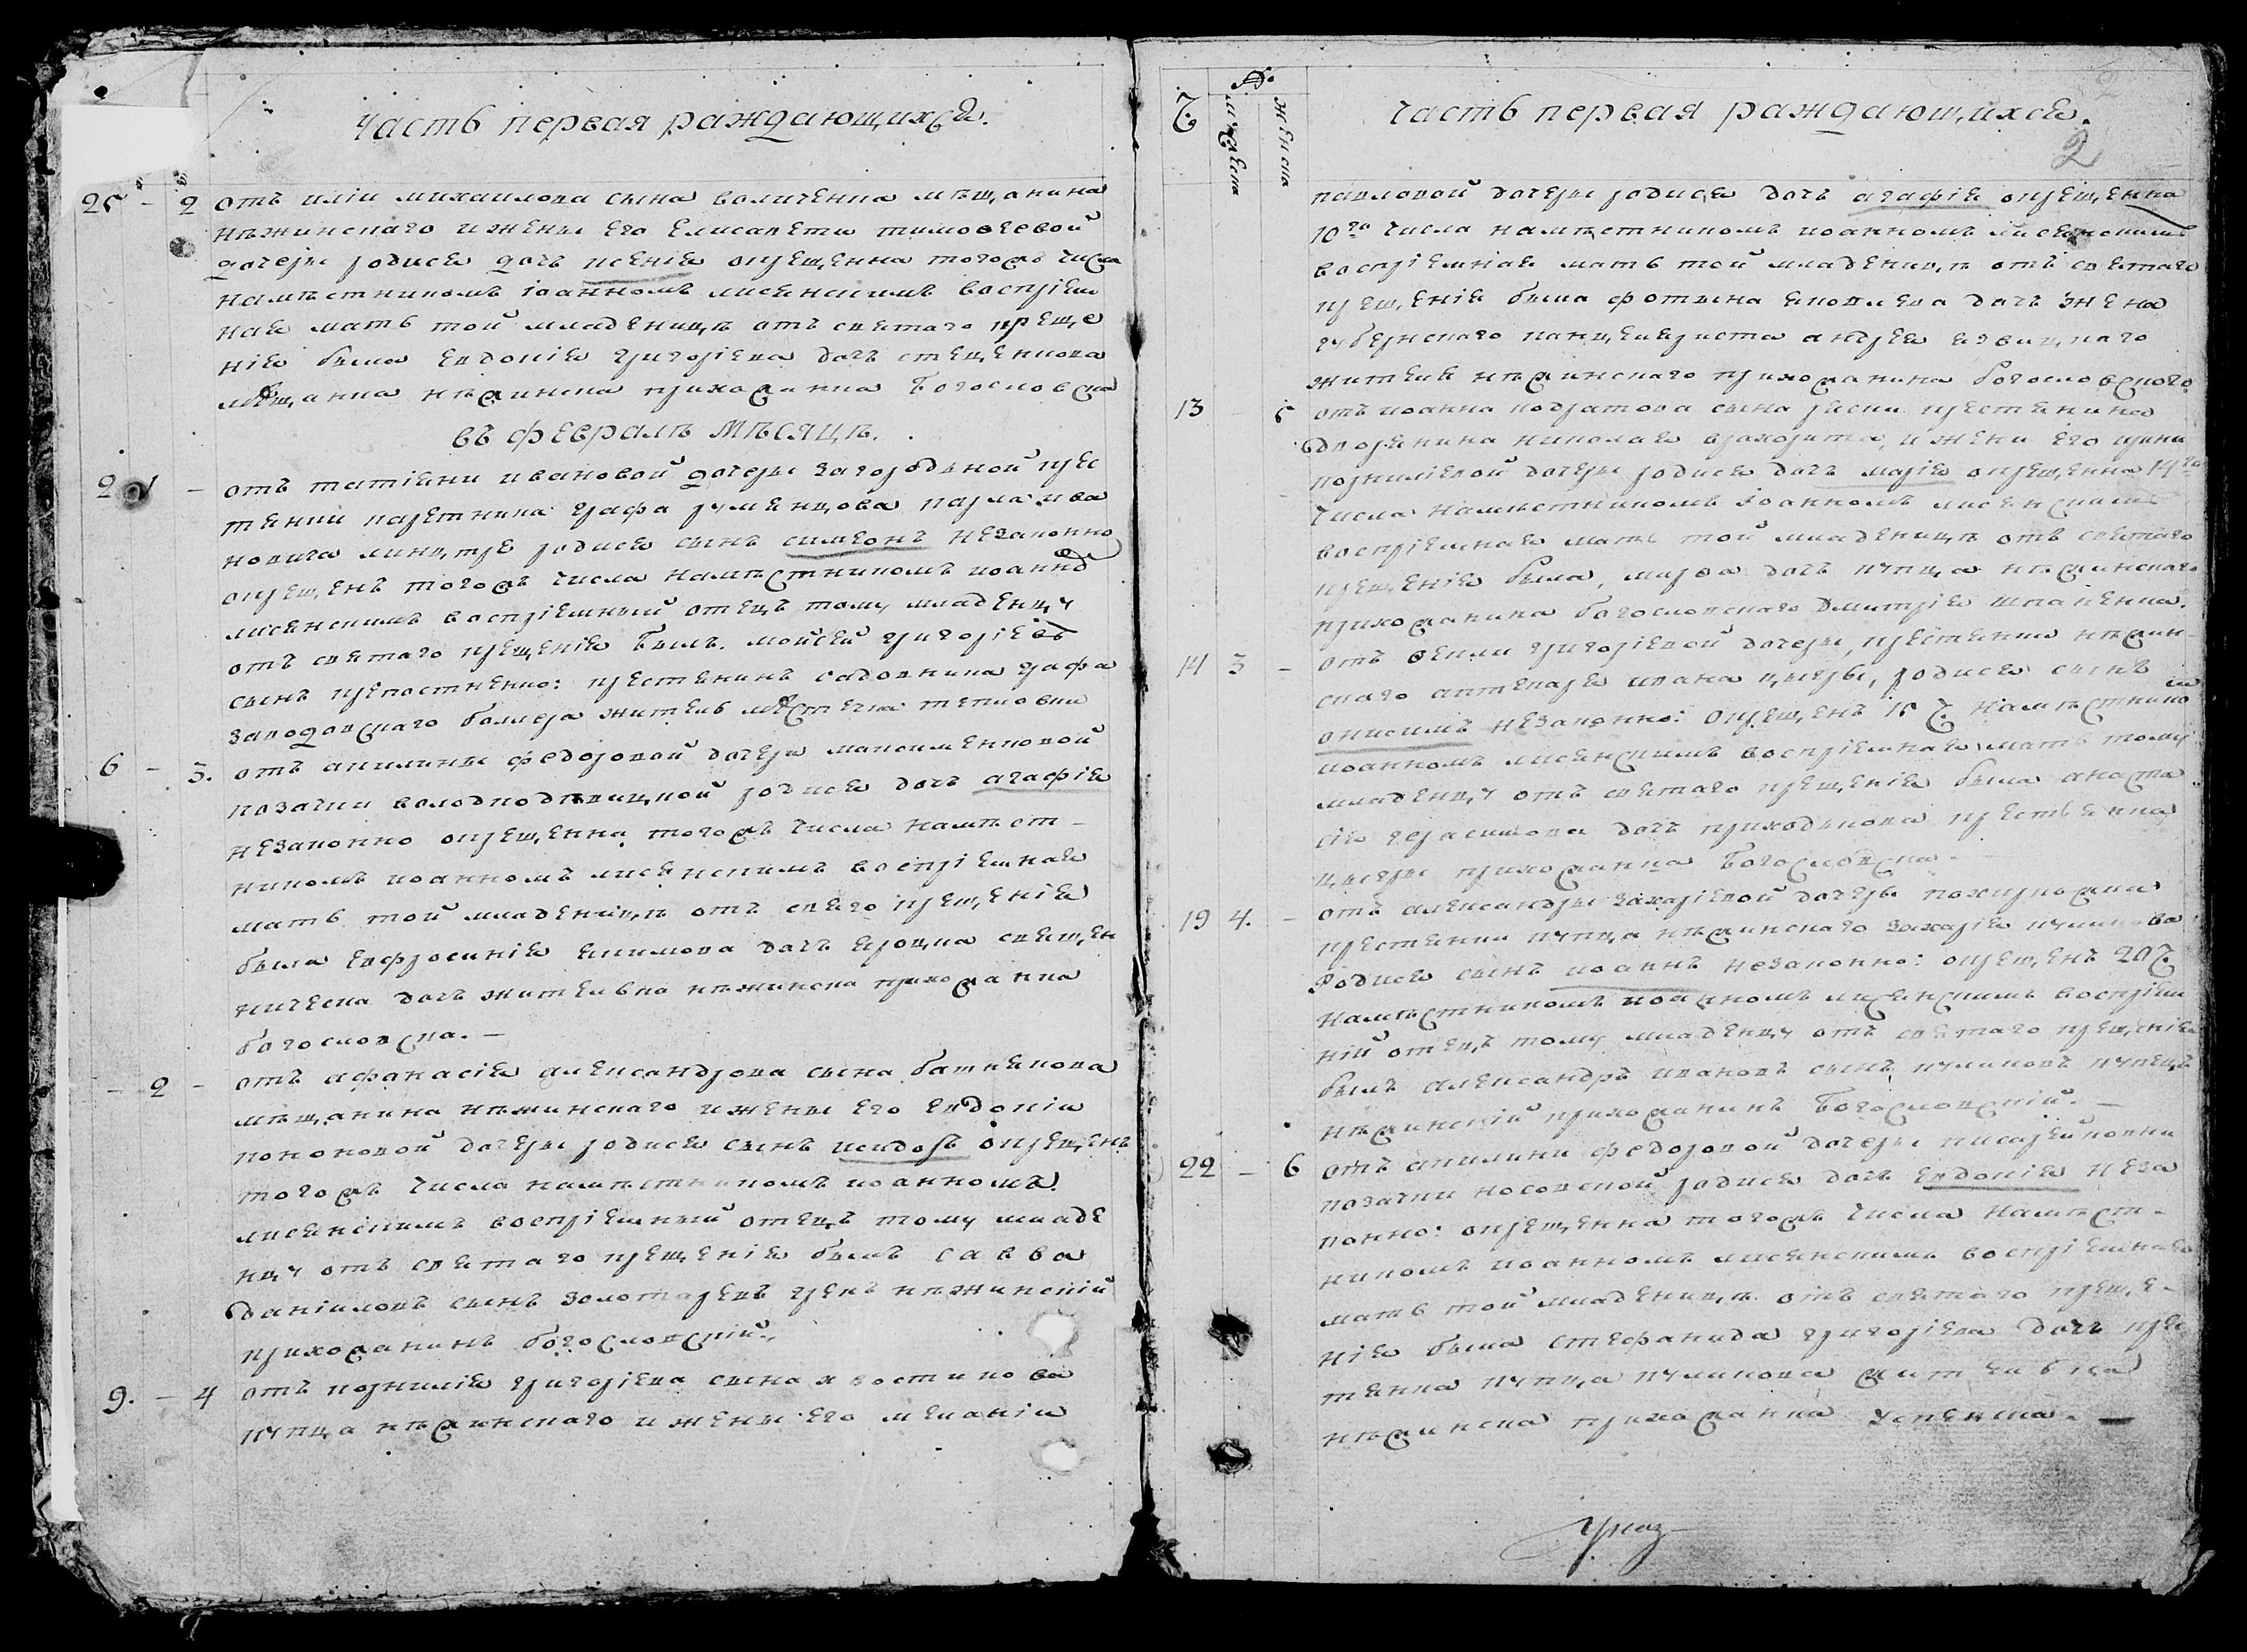 Часть первая раждающихся.
25 - 2 отъ иліи михаилова сына величенка мѣщанина
нѣжинскаго и жены его елисавети тимоѳеевой
дочеры родися дочъ ксенія окрещенна тогожъ числа
намѣстникомъ іоанномъ лисенскимъ воспріем
ная мать той младеницѣ отъ святаго креще
нія была евдокія григоріева дочъ стеценкова
мѣщанка нѣжинска прихожанка Богословска
въ февралѣ мѣсяцѣ.
2 1 - отъ татіяни ивановой дочеры загородьной крес
тянки каретника графа румянцова карла ива
новича родися сынъ симеонъ незаконно
окрещенъ тогожъ числа намѣстникомъ иоанно
лисенскимъ воспріемный отецъ тому младенцу
отъ святаго крещенія былъ мойсей григоріевъ
сынъ крестянинъ садовника графа
заводовскаго житель мѣстечка
6 - 3. отъ акилины федоровой дочеры максименковой
козачки родися дочъ агафія
незаконно окрещенна тогожъ числа намѣст-
никомъ иоанномъ лисенскимъ воспріемная
мать той младеницѣ отъ святаго крещенія
была евфросинія екимова дочъ священ
ническа дочъ жителька нѣжинска прихожанка
богословска. -
- 2 - отъ афанасія александрова сына
мѣщанина нѣжинскаго и жены его евдокіи
кононовой дочеры родися сынъ исидоръ окрещенъ
тогожъ числа намѣстникомъ иоанномъ
лисенскимъ воспріемный отецъ тому младе
нцу отъ святаго крещенія былъ савва
даніиловъ сынъ золотаревъ грекъ нѣжинскій
прихожанинъ богословскій.
9. - 4 отъ корнилія григоріева сына хвостикова
купца нѣжинскаго и жены его меланіи
Ч. № мужеска женска
Часть первая раждающихся.
2
павловой дочеры родися дочъ агафія окрещенна
10го числа намѣстникомъ иоанномъ лисенскимъ
воспріемная мать той младеницѣ отъ святаго
крещенія была фотына яковлева дочъ жена
губернскаго канцеляриста андрея
жителя нѣжинскаго прихожанина богословского
13 - 5 отъ иоанна сына крестянина
дворянина николая и жени его ирини
корниліевой дочеры родися дочъ марія окрещенна 14го
числа намѣстникомъ іоанномъ лисенским
воспріемная мать той младеницѣ отъ святаго
крещенія была, марфа дочъ купца нѣжинскаго
прихожанина богословскаго дмитрія
14 3 - отъ григоріевой дочеры, крестянки нѣжин-
скаго аптекаря ивана родися сынъ
онисимъ незаконно: окрещенъ 15 ч. намѣстнико
иоанномъ лисенскимъ воспріемная мать тому
младенцу отъ святаго крещенія была анаста
сія герасимова дочъ крестьянка
прихожанка богословска.
19 4. - отъ александры захаріевой дочеры
крестянки купца нѣжинскаго захарія куликова
родися сынъ иоаннъ незаконно: окрещенъ 20 ч.
намѣстникомъ иоанномъ лисенскимъ воспріем
ній отецъ тому младенцу отъ святаго крещенія
былъ александръ ивановъ сынъ куликовъ купецъ
нѣжинскій прихожанинъ Богословскій. -
22 - 6 отъ акилини федоровой дочеры
козачки носовской родися дочъ евдокія неза
конно: окрещенна тогожъ числа намѣст-
никомъ иоанномъ лисенскимъ воспріемная
мать той младеницѣ отъ святаго креще-
нія была стефанида григоріева дочъ крес
тянка купца куликова жителька
нѣжинска прихожанка успенска. -